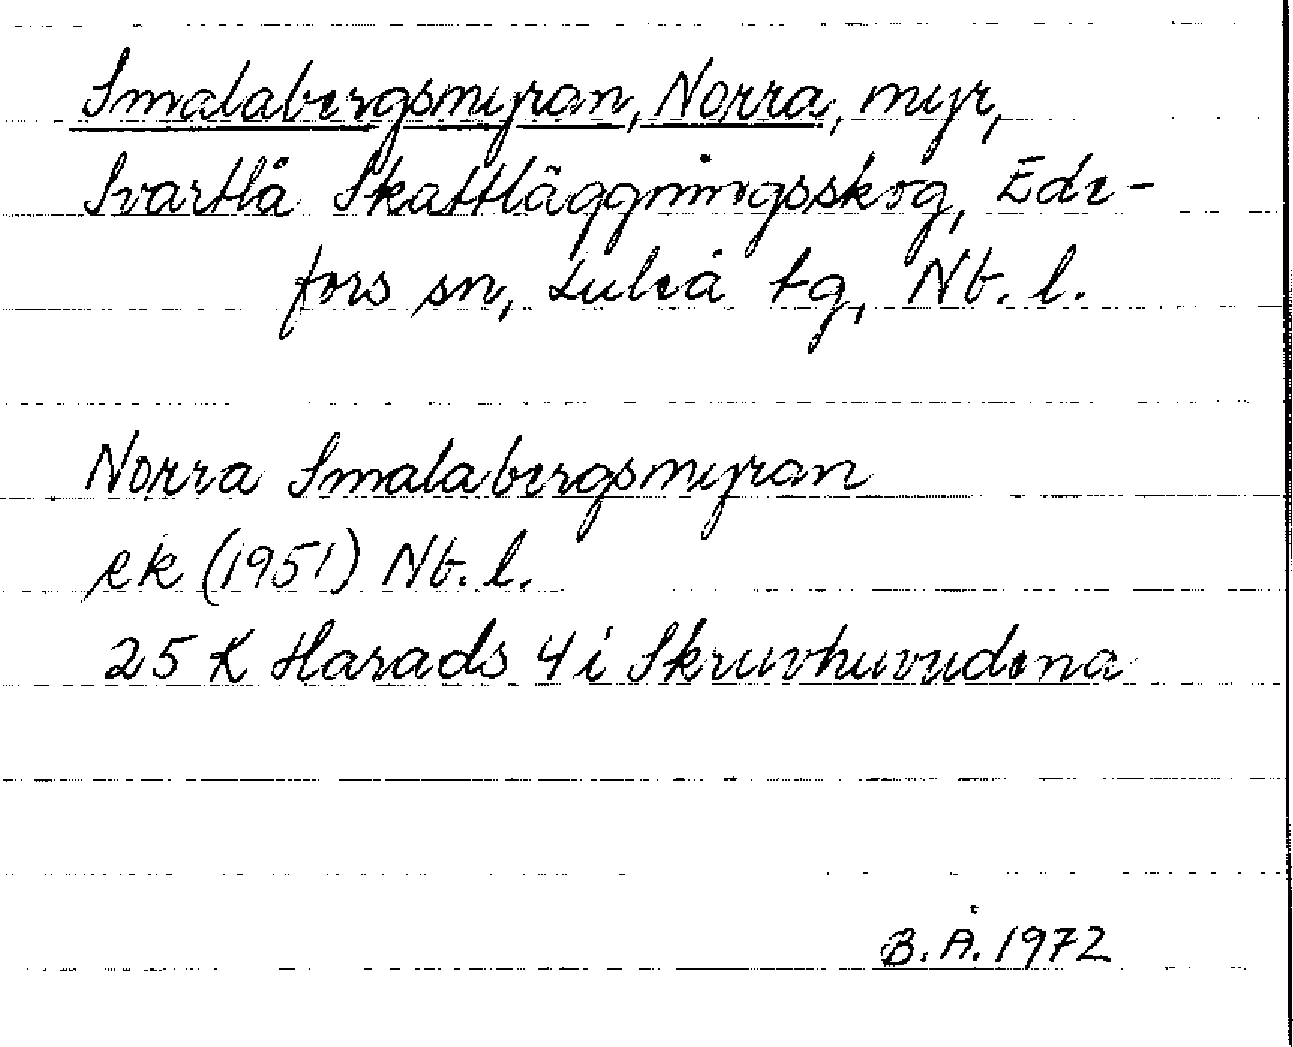 Smalabergsmyran, Norra, myr,
Svartlå Skattläggningsskog, Ede-
fors sn, Luleå tg, Nb. l.
Norra Smalabergsmyran
ek (1951) Nb. l.
25 K Harads 4 i Skruvhuvudena
B. Å. 1972